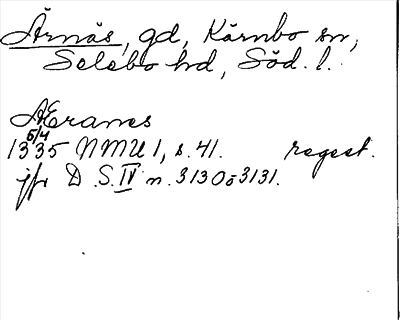 Ärnäs, gd, Kärnbo sn,
Selebo hd, Söd. l.
Æranes
5/4
1335 NMU 1, s. 41. regest.
jfr D.S. IV n. 3130 o 3131.